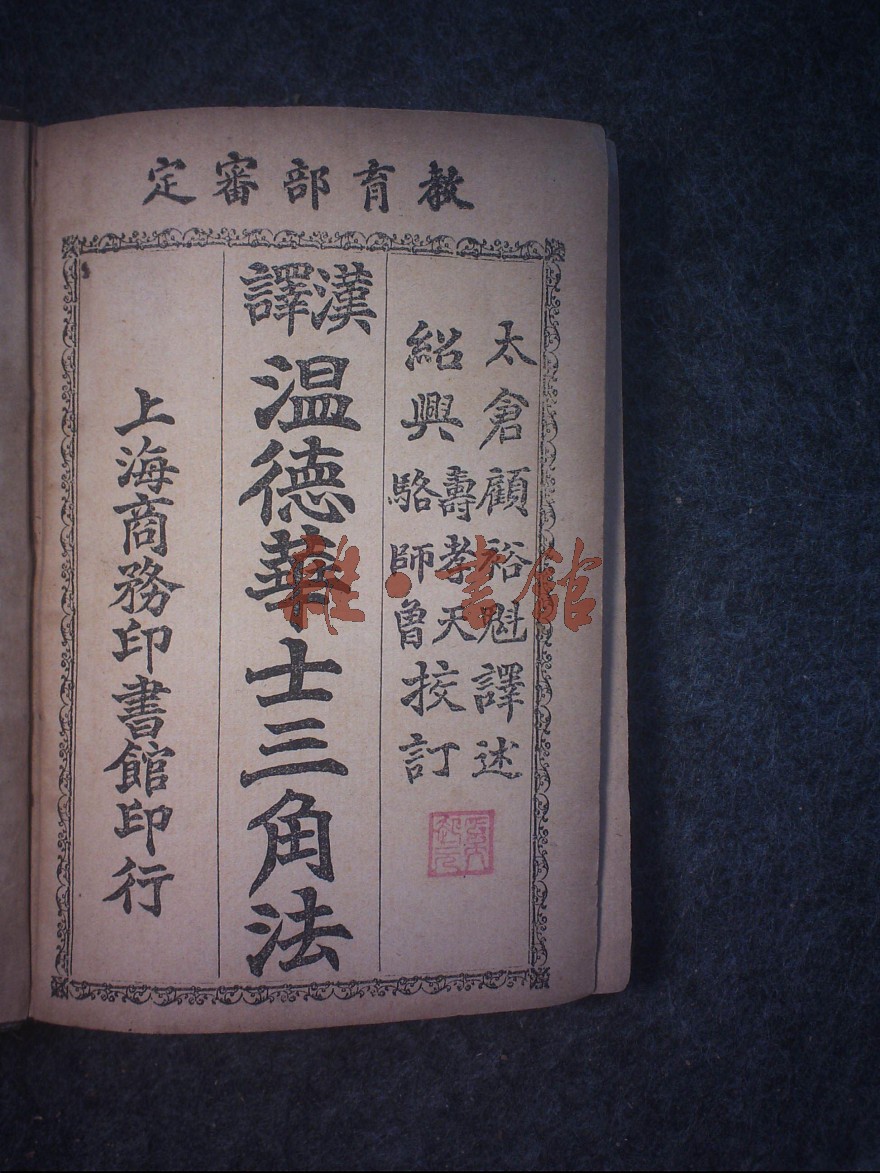 教育部審定
太倉顧裕魁譯述
紹興
壽孝天
駱師曾
挍訂
漢譯
温德華士三角法
上海商務印書館印行
雜·書館